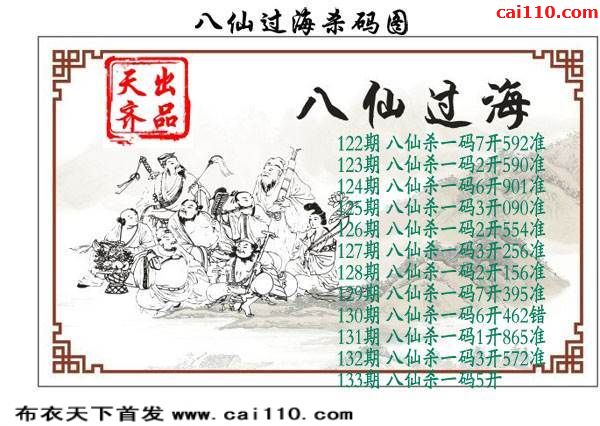 八仙过海杀码图
cai110.com
天齐
出品
八仙过海
122期 八仙杀一码7开592准
123期 八仙杀一码2开590准
124期 八仙杀一码6开901准
125期 八仙杀一码3开090准
126期 八仙杀一码2开554准
127期 八仙杀一码3开256准
128期 八仙杀一码2开156准
129期 八仙杀一码7开395准
130期 八仙杀一码6开462错
131期 八仙杀一码1开865准
132期 八仙杀一码3开572准
133期 八仙杀一码5开
布衣天下首发 www.cai110.com